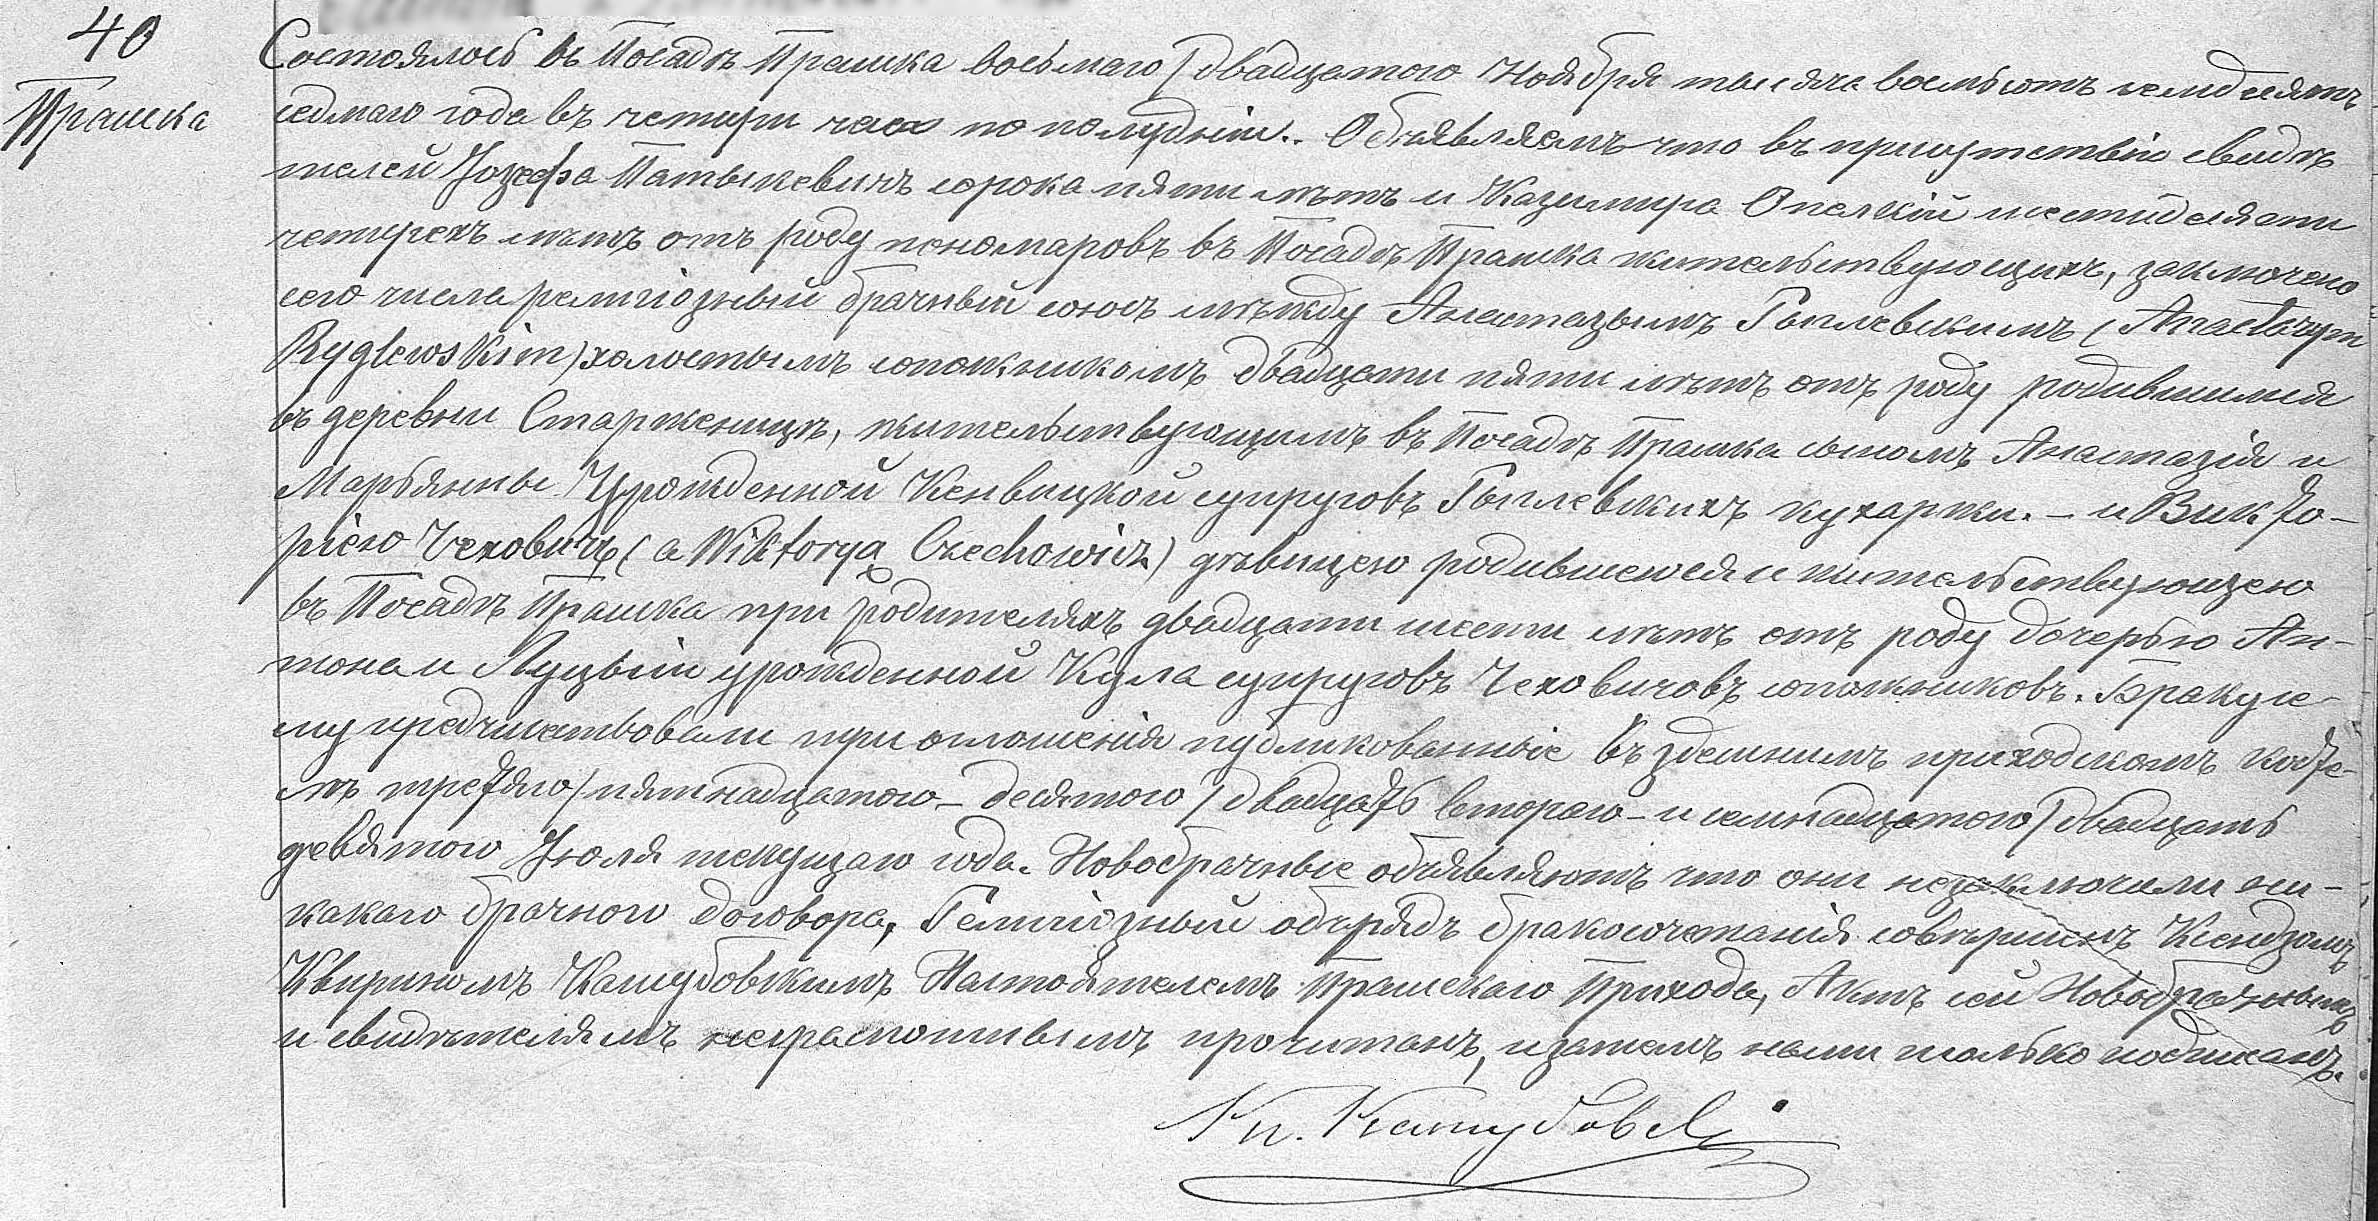 40
Прашка
Состоялось въ Посадѣ Прашка восьмаго / двадцатого Ноября тысяча восемьсотъ семдесятъ
седмаго года въ четыри часо по полудніи. Объявляемъ что въ присутствію свидѣ
телей Іозефа Патыкевичъ сорока пяти лѣтъ и Казимира Опелкій шестидесяти
четырехъ лѣтъ отъ роду пономаровъ въ Посадѣ Прашка жительствующихъ, заключено
сего числа религіозный брачный союзъ мѣжду Анастазымъ Рыглевскимъ (Anastazym
Ryglewskim) холостымъ сапожникомъ двадцати пяти лѣтъ отъ роду родившимся
въ деревни Старженицѣ, жительствующимъ въ Посадѣ Прашка сыномъ Анастазія и
Марьянны Урожденной Кенвицкой супруговъ Рыглевскихъ кухарки. – и Викто-
ріею Чеховичъ (a Wiktoryą Czechowicz) дѣвицею родившеюся и жительствующею
въ Посадѣ Прашка при родителяхъ двадцати шести лѣтъ отъ роду дочерью Ан-
тона и Луцыи урожденной Кула супруговъ Чеховичовъ сапожниковъ. Браку се
му предчиествовали три оглошенія публикованные въ здешнимъ приходскомъ косте-
лѣ третяго / пятнадцатого – десятого / двадцать второго – и семнадцатого / двадцать
девятого Іюля текущаго года. Новобрачные объявляютъ что они незаключили ни-
какаго брачного договора, Религіозный обърядъ бракосочетанія совершенъ Ксендзомъ
Квириномъ Кашубовскимъ Настоятелемъ Прашскаго Прихода, Актъ сей Новобрачнымъ
и свидѣтелямъ неграмотнымъ прочитанъ, изатемъ нами только подписанъ.
Кн. Кашубовскі